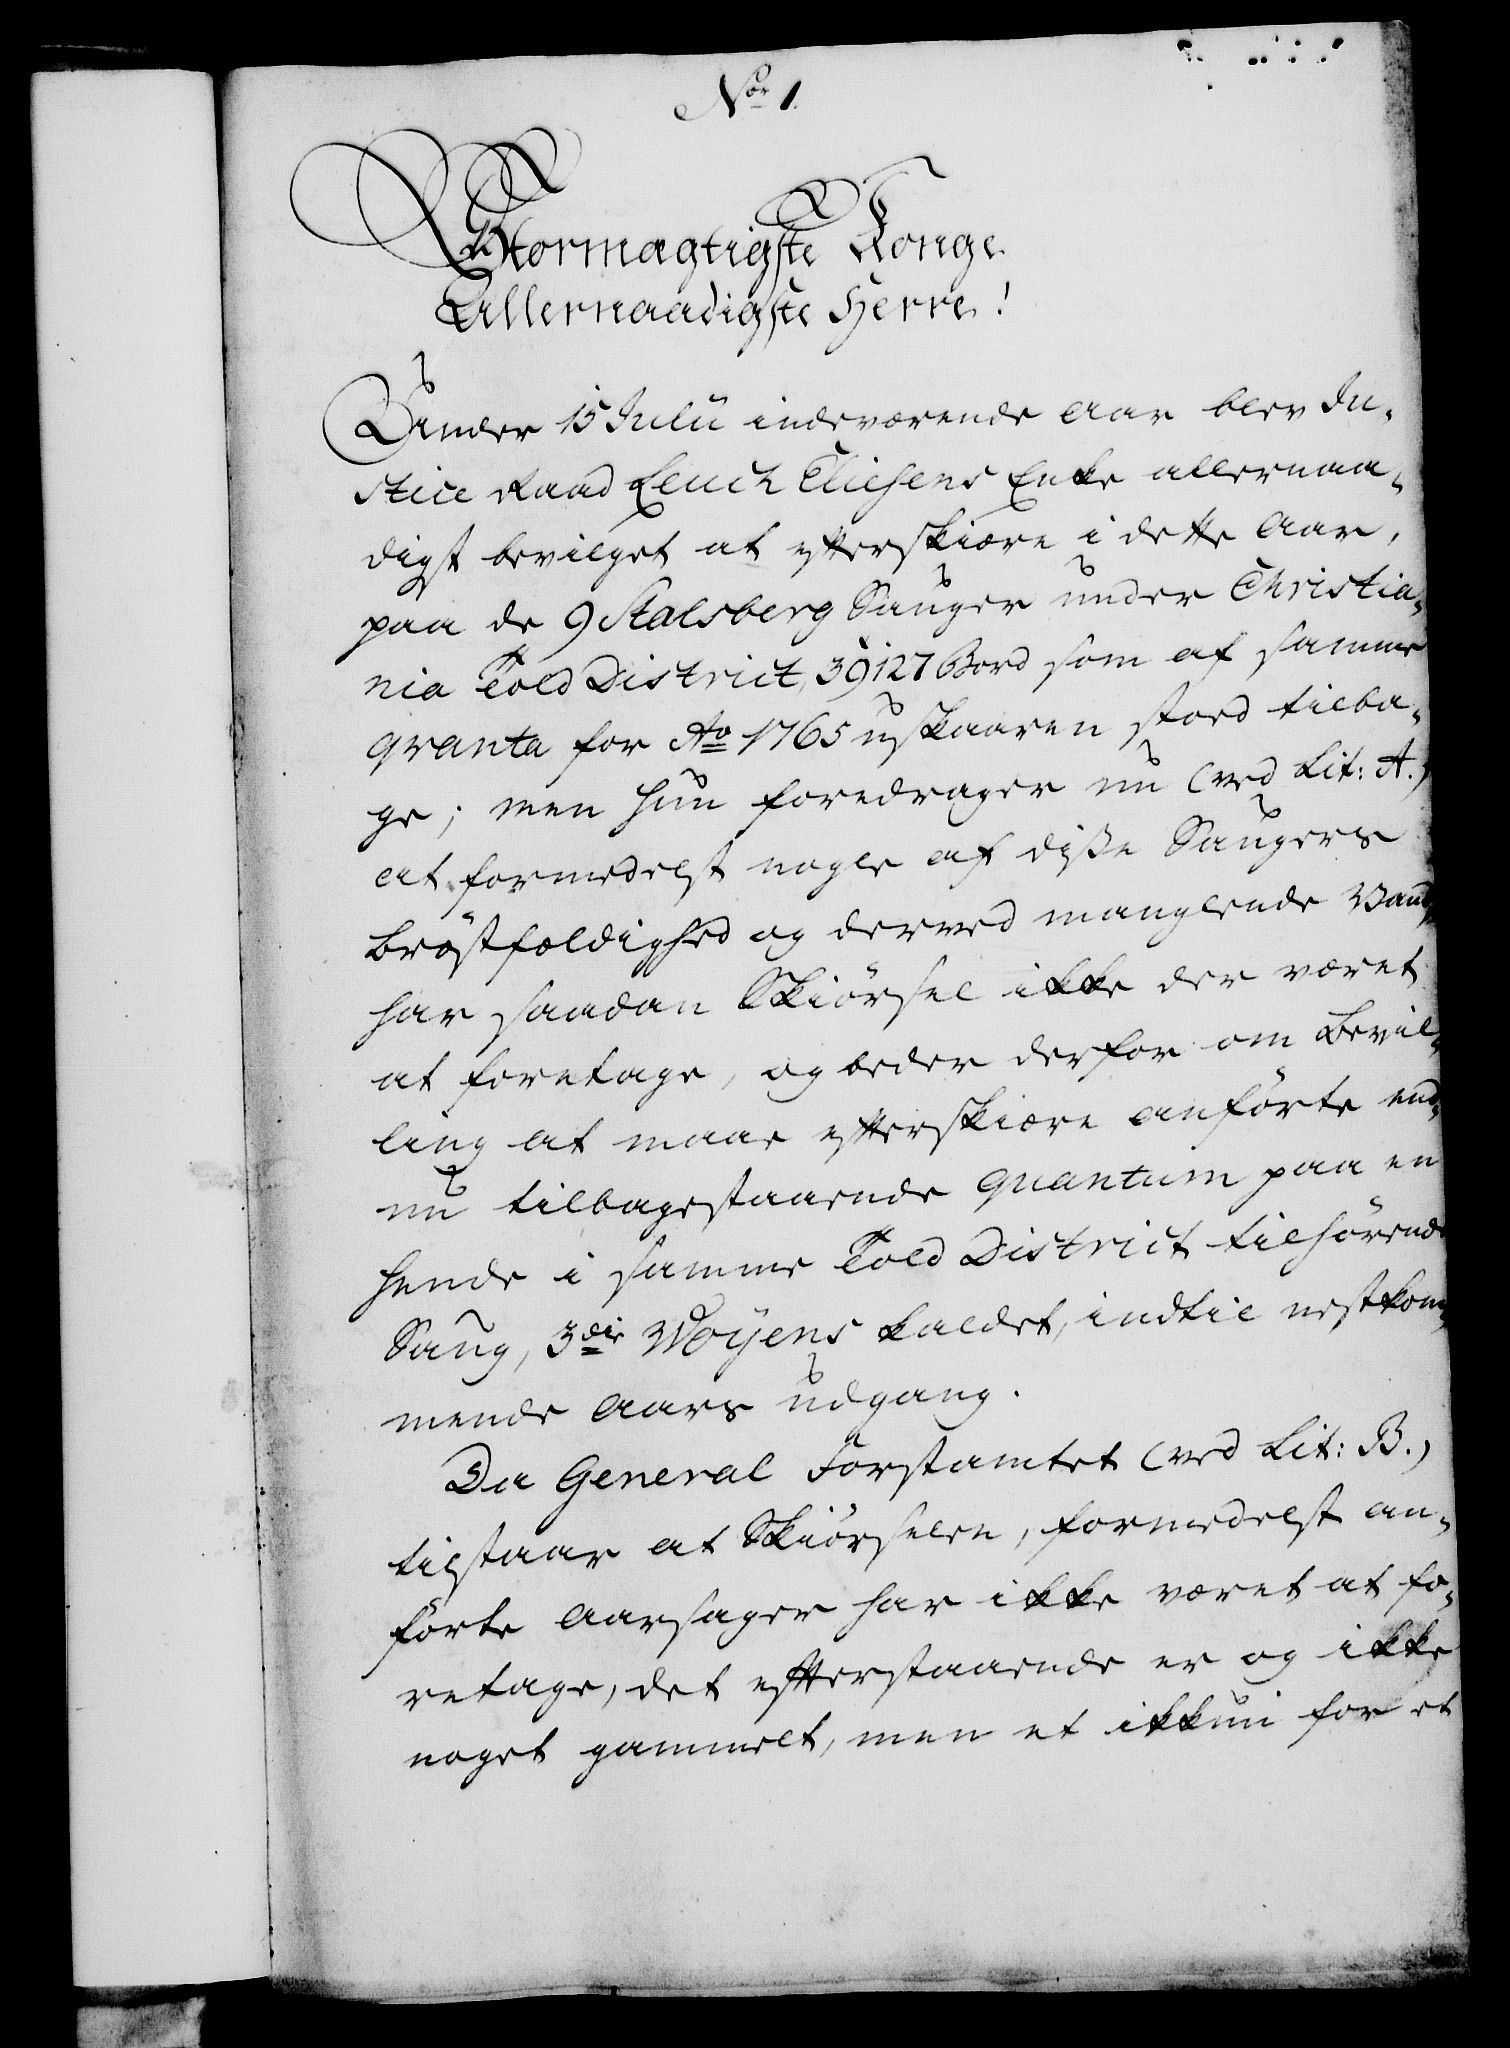 Nor 1.
Stormægtigste Konge
Allernaadigste Herre!
Under 15 Julii indeværende Aar blev Ju-
stice Raad Leuch Eliesens Enke allernaa-
digst bevilget at efterskiære i dette Aar,
paa de 9 Stalsberg Sauger under Christia-
nia Told District, 39127 Bord som af samme
qvanta for Ao 1765 uskaaren stoed tilba-
ge; men hun foredrager nu (ved Lit: A.)
at formedelst nogle af disse Saugers
Brøstfældighed og derved manglende Vand,
har saadan Skiørsel ikke der været
at foretage, og beder derfor om Bevil-
ling at maae efterskiære anførte end-
nu tilbagestaaende quantum paa en
hende i samme Told District tilhørende
Saug, 3die Woyens kaldet, indtil nestkom-
mende Aars udgang.
Da General Forstamtet (ved Lit: B.)
tilstaar at Skiørselen, formedelst an-
førte Aarsager har ikke været at fo-
retage, det efterstaaende er og ikke
noget gammelt, men et ikkun for et